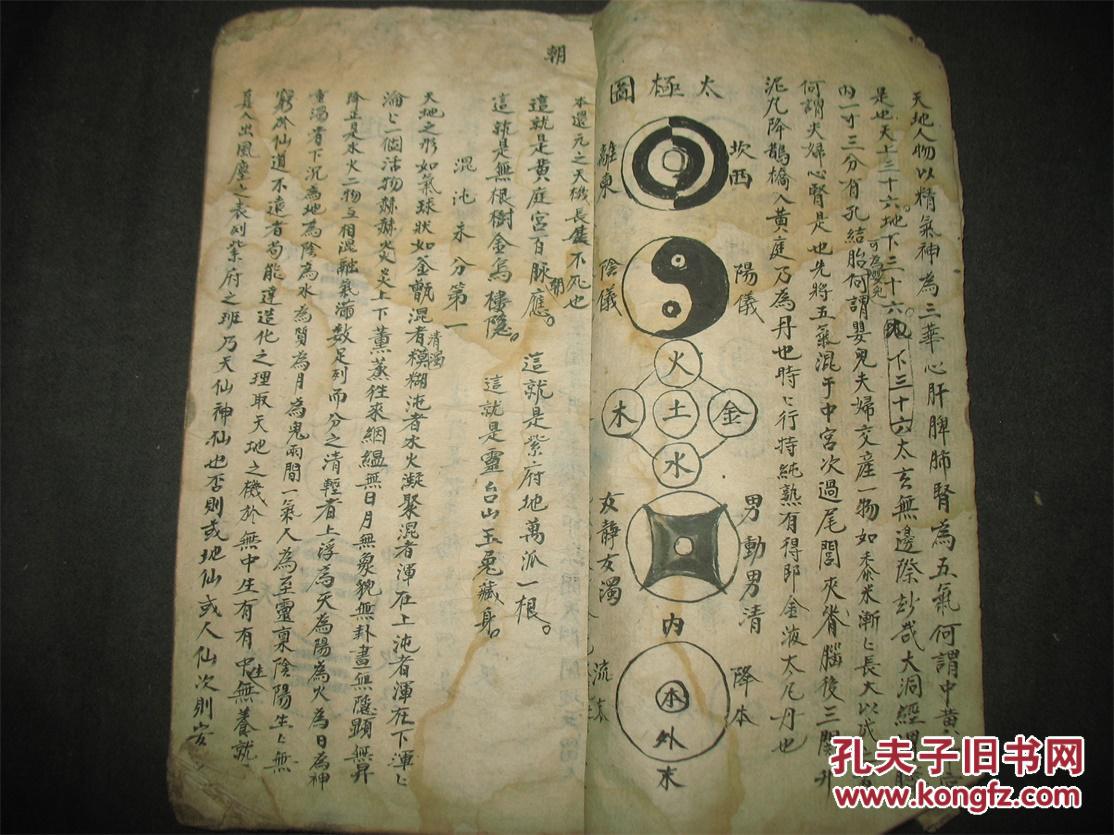 天地人物以精氣神為三華心肝脾肺腎為五氣何謂中黃
是也天上三十六地下三十六地下三十六太玄無邊際妙哉大洞經
可為嬰兒
內一寸三分有孔結胎何謂嬰兒夫婦交產一物如黍米漸〻長大以
何謂夫婦心腎是也先將五氣混于中宮次過尾閭夾脊腦後三關升
泥丸降鵲橋入黃庭乃為丹也時〻行持純熟有得即金液太乙丹也
太極圖
坎西
離東
陽儀
陰儀
火
木
土
金
水
男動男清
女靜女濁
內
降本
流末
本
外
末
朝
本還元之天機長生不死也
這就是黃庭宮百脉應朝。 這就是紫府地萬派一根。
這就是無根樹金烏棲隱。 這就是靈台山玉兔藏身。
混沌未分第一
天地之形如氣球狀如釜甑混者模糊沌者水火凝聚混者渾在上沌者渾在下渾〻
清濁
淪〻一個活物赫赫火炎上下薰蒸徃來絪緼無日月無象貌無卦畫無隱顕無昇
降正是水火二物互相混融氣滿數足列而分之清輕者上浮為天為陽為火為日為神
重濁者下沉為地為陰為水為質為月為鬼兩間一氣人為至靈禀陰陽生〻無
窮於仙道不遠者苟能達造化之理取天地之機於無中生有有中無養就
真人出風塵之表列紫府之班乃天仙神仙也否則或地仙或人仙次則安
孔夫子旧书网
www.kongfz.com